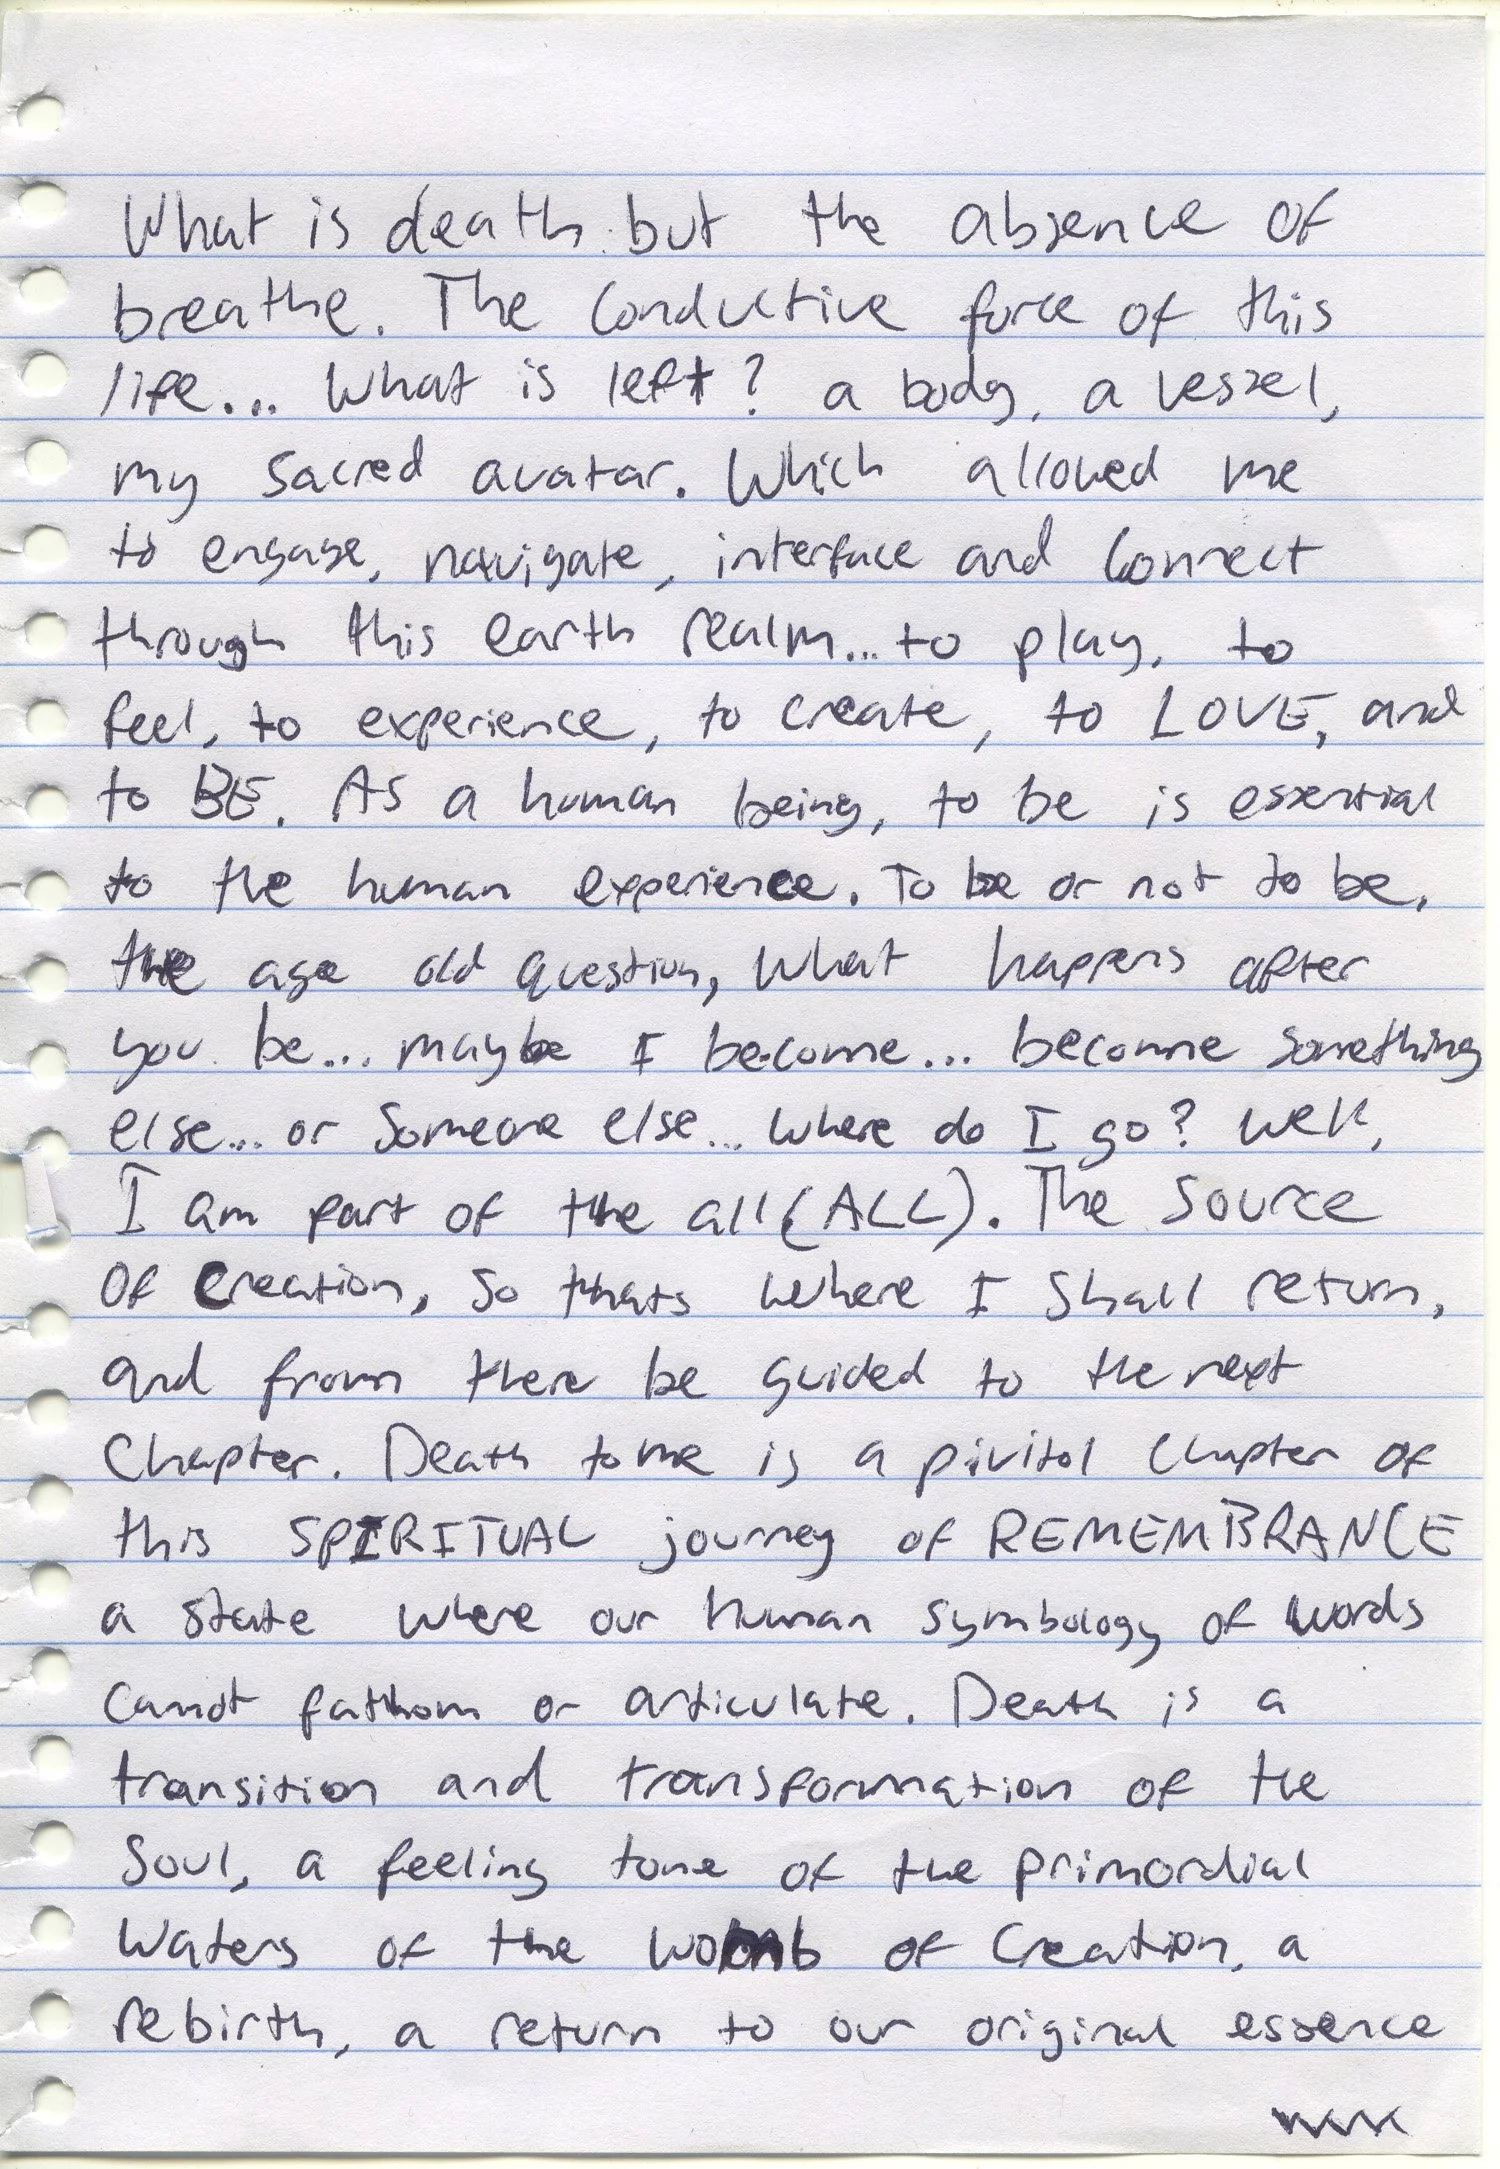 What is death but the absence of
breathe. The conductive force of this
life... What is left? a body, a vessel,
my sacred avatar. Which allowed me
to engage, navigate, interface and connect
through this earth realm... to play, to
feel, to experience, to create, to LOVE, and
to BE. As a human being, to be is essential
to the human experience. To be or not to be,
the age old question, what happens after
you be... maybe I become... become something
else... or someone else... where do I go? well,
I am part of the all (ALL). The Source
of Creation, so thats where I shall return,
and from there be guided to the next
Chapter. Death to me is a pivitol chapter of
this SPIRITUAL journey of REMEMBRANCE
a state where our human symbology of words
cannot fathom or articulate. Death is a
transition and transformation of the
Soul, a feeling tone of the primordial
Waters of the womb of Creation, a
rebirth, a return to our original essence